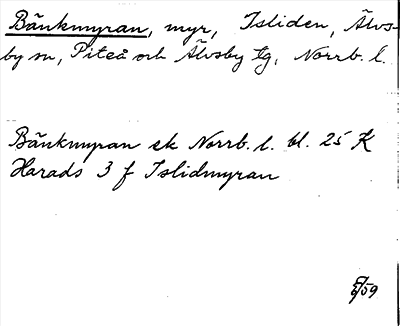 Bänkmyran, myr, Isliden, Älvs-
by sn, Piteå och Älvsby tg, Norrb. l.
Bänkmyran ek Norrb. l. bl. 25 K
Harads 3 f Islidmyran
59